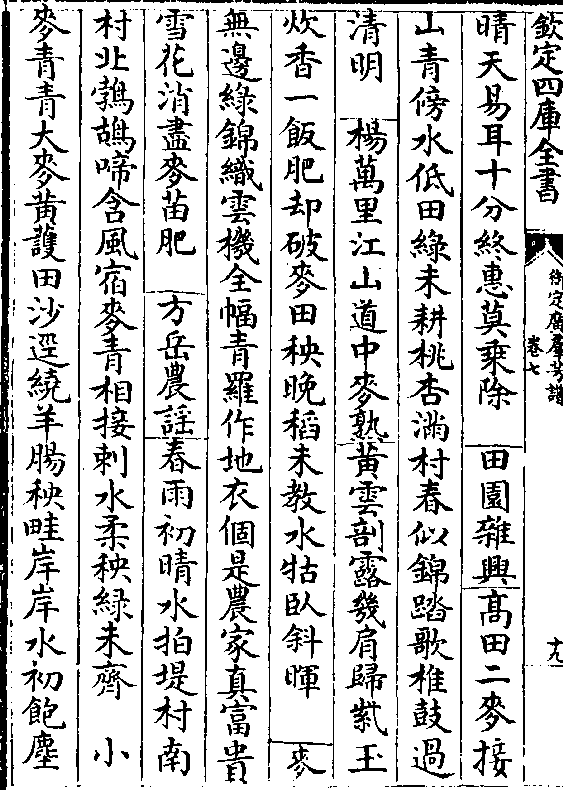 欽定四庫全書
御定廣羣芳譜
卷七
十九
晴天易耳十分終惠莫乗除　田園雜興髙田二麥接
山青傍水低田綠未耕桃杏滿村春似錦踏歌椎鼓過
清明　楊萬里江山道中麥熟黄雲剖露幾肩歸紫玉
炊香一飯肥却破麥田秧晚稻未教水牯臥斜暉　麥
無邊綠錦織雲機全幅青羅作地衣個是農家真富貴
雪花消盡麥苗肥　方岳農謡春雨初晴水拍堤村南
村北鵓鴣啼含風宿麥青相接刺水柔秧綠未齊　小
麥青青大麥黄䕶田沙逕繞羊腸秧畦岸岸水初飽塵